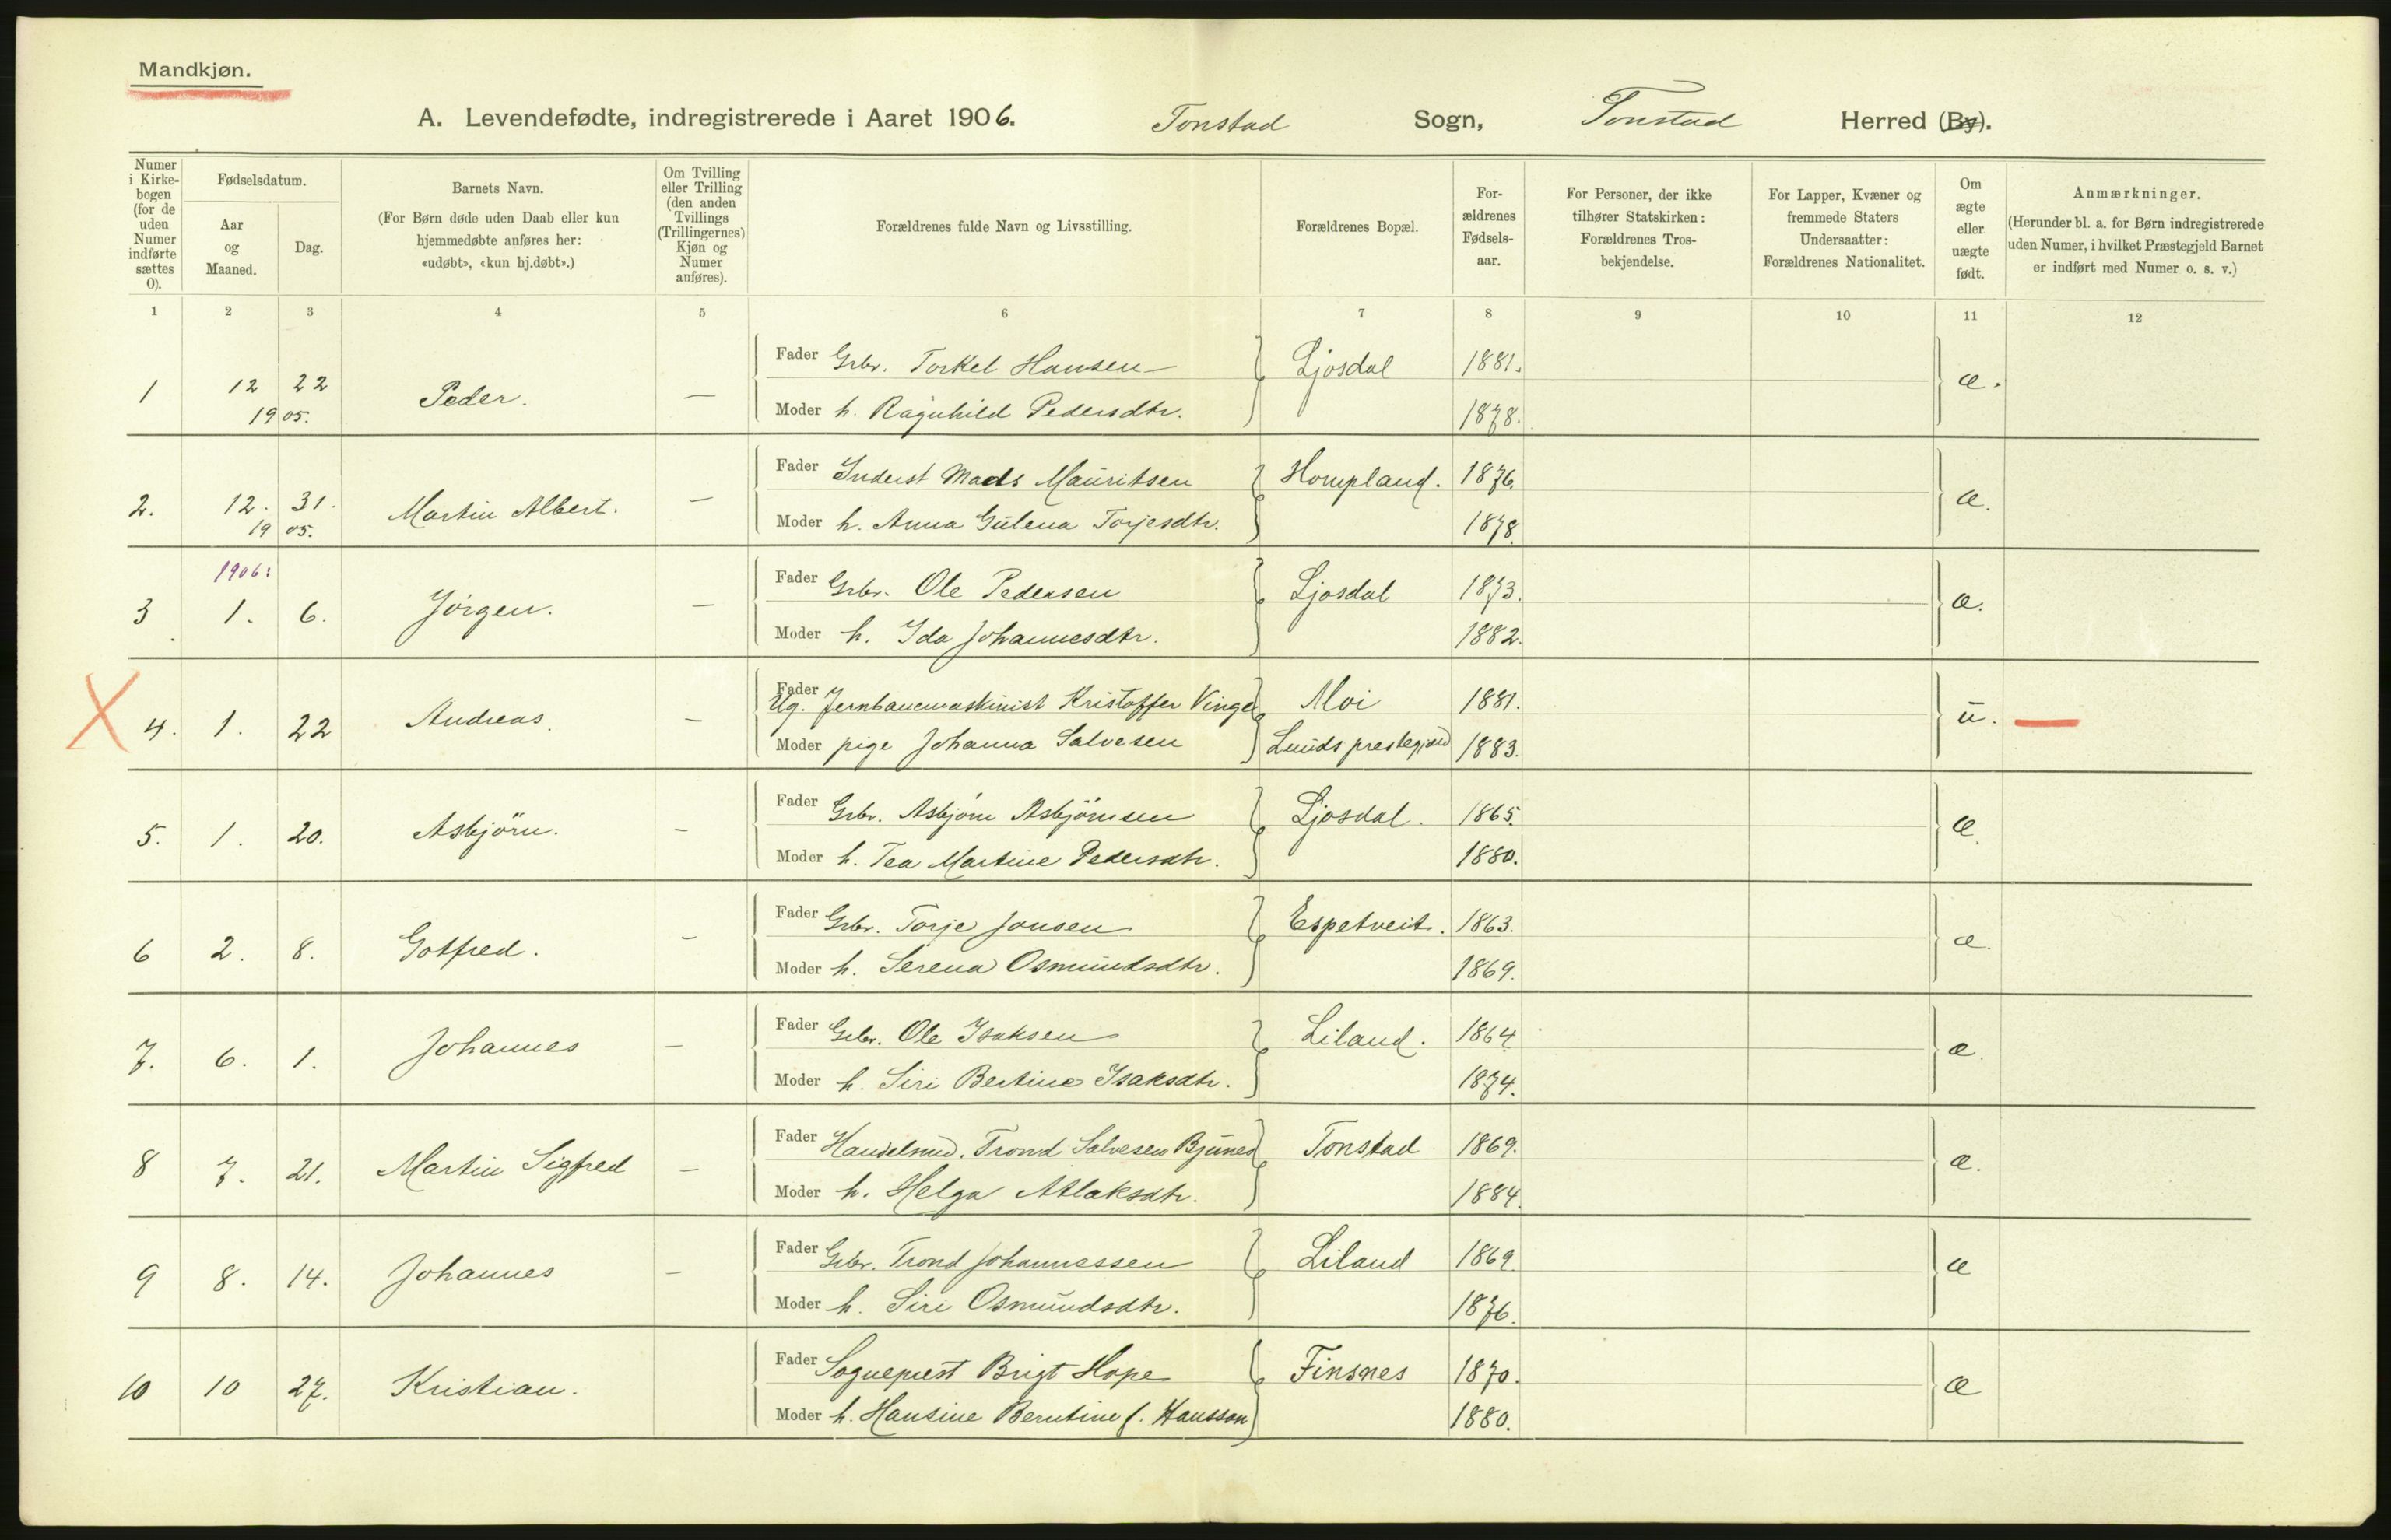 Mandkjøn.
A. Levendefødte, indregistrerede i Aaret 1906. Tonstad Sogn, Tonstad Herred (By).
Numer i Kirke-bogen (for de uden Numer indførte sættes 0).
Fødselsdatum.
Aar og Maaned.
Dag.
Barnets Navn.
(For Børn døde uden Daab eller kun hjemmedøbte anføres her: «udøbt», «kun hj.døbt».)
Om Tvilling eller Trilling (den anden Tvillings (Trillingernes) Kjøn og Numer anføres).
Forældrenes fulde Navn og Livsstilling.
Forældrenes Bopæl.
For-ældrenes Fødsels-aar.
For Personer, der ikke tilhører Statskirken: Forældrenes Tros-bekjendelse.
For Lapper, Kvæner og fremmede Staters Undersaatter: Forældrenes Nationalitet.
Om ægte eller uægte født.
Anmærkninger.
(Herunder bl. a. for Børn indregistrerede uden Numer, i hvilket Præstegjeld Barnet er indført med Numer o. s. v.)
1 2 3 4 5 6 7 8 9 10 11 12
Fader Grbr. Torkel Hansen Ljosdal 1881.
1 12 22 Peder. — æ.
1905.
Moder h. Ragnhild Pedersdtr. 1878.
Fader Inderst Mads Mauritsen Hompland. 1876.
2. 12. 31. Martin Albert. — æ.
1905.
Moder h. Anna Gulena Torjesdtr. 1878.
1906:
Fader Grbr. Ole Pedersen Ljosdal 1873.
3 1. 6. Jörgen. — æ.
Moder h. Ida Johannesdtr. 1882.
Fader Ug. Jernbanemaskinist Kristoffer Vinge Moi 1881.
X 4. 1. 22 Andreas. — u. —
Moder pige Johanna Salvesen Lunds prestegjæld 1883.
Fader Grbr. Asbjörn Asbjörnsen Ljosdal. 1865.
5. 1. 20. Asbjörn. — æ.
Moder h. Tea Martine Pedersdtr. 1880.
Fader Grbr. Torje Jonsen Espetveit. 1863.
6 2. 8. Gotfred. — æ.
Moder h. Serena Osmundsdtr. 1869.
Fader Grbr. Ole Isaksen Liland. 1864.
7. 6. 1. Johannes — æ.
Moder h. Siri Bertine Isaksdtr. 1874.
Fader Handelsmd. Trond Salvesen Bjunes Tonstad 1869.
8 7. 21. Martin Sigfred — æ.
Moder h. Helga Atlaksdtr. 1884.
Fader Grbr. Trond Johannessen Liland 1869.
9 8. 14. Johannes — æ
Moder h. Siri Osmundsdtr. 1876.
Fader Sogneprest Brigt Hope Finsnes 1870.
10 10 27. Kristian. æ
Moder h. Hansine Berntine f. Hansson 1880.